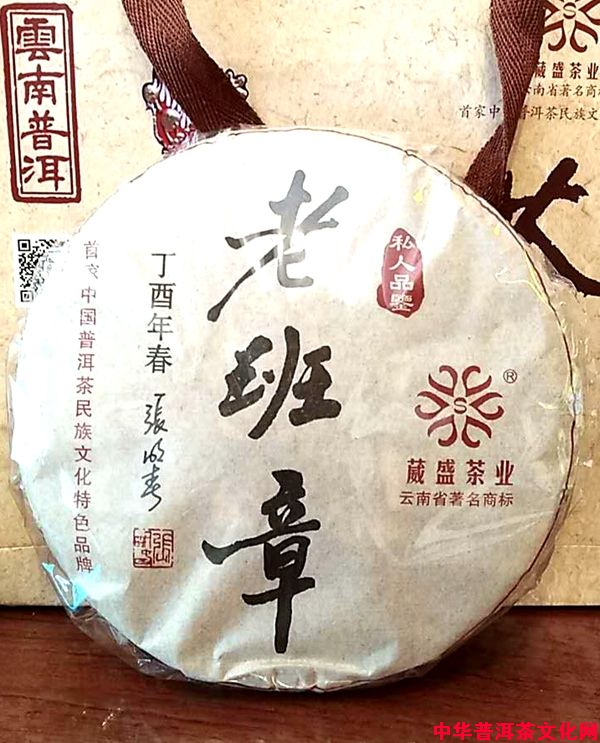 雲南普洱
葳盛茶业
云南省著名商标
首家中国普洱茶民族文
老班章
私人品鉴
丁酉年春
首家中国普洱茶民族文化特色品牌
S
®
葳盛茶业
云南省著名商标
中华普洱茶文化网